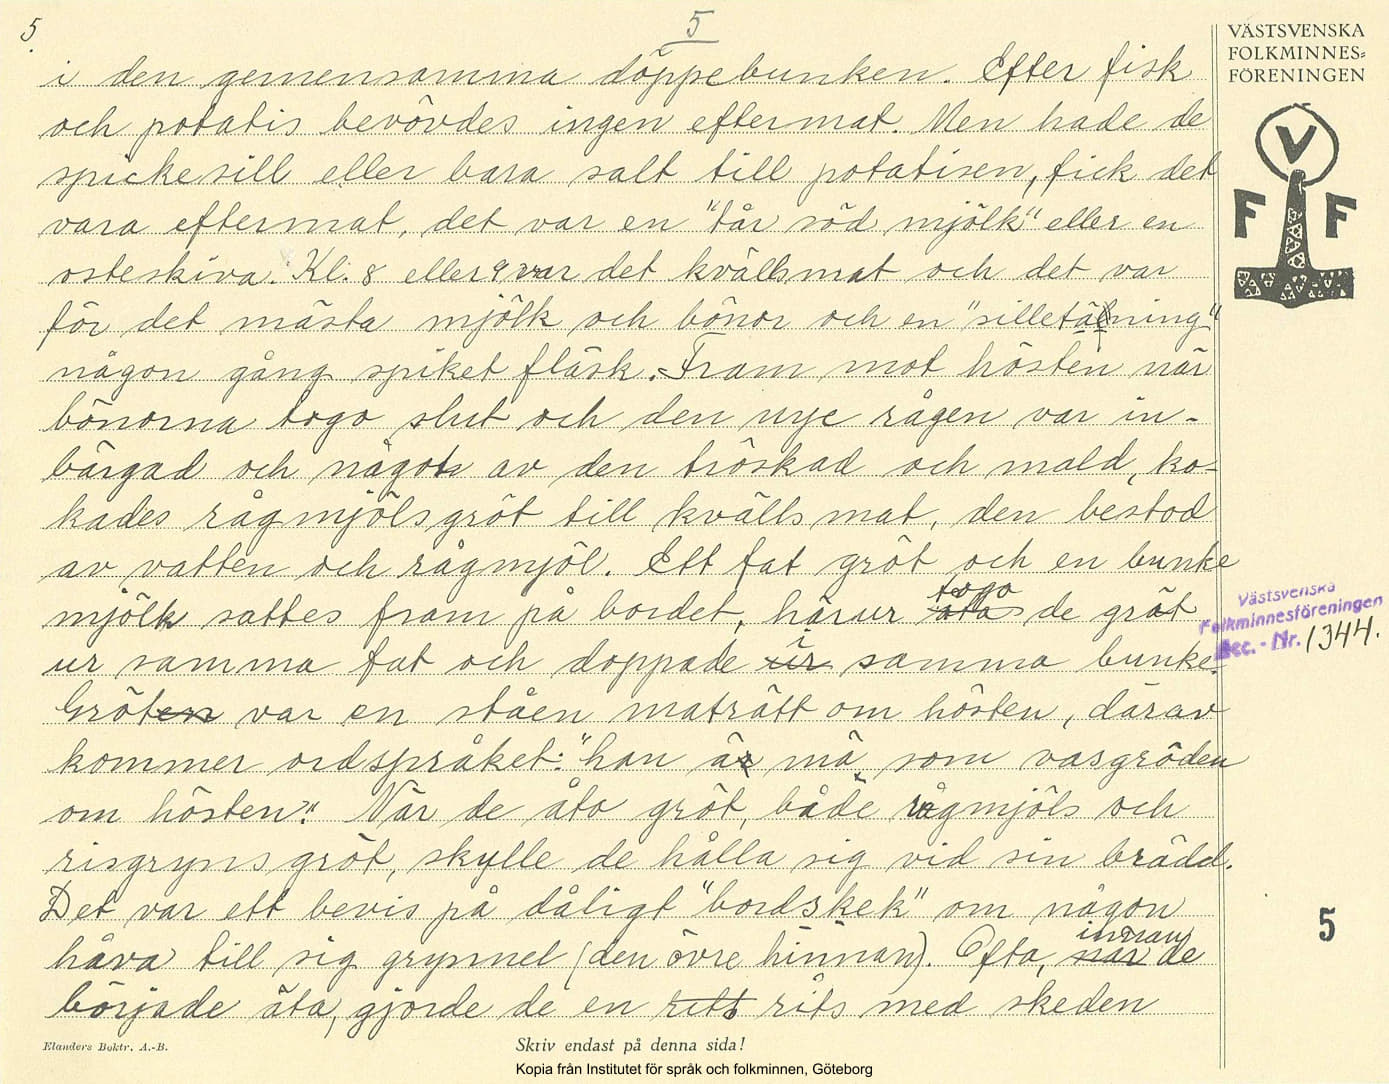 5.
5
VÄSTSVENSKA
FOLKMINNES-
FÖRENINGEN
V
F F
i den gemensamma döppebunken. Efter fisk
och potatis bevövdes ingen eftermat. Men hade de
spickesill eller bara salt till potatisen, fick det
vara eftermat, det var en "tår söd mjölk" eller en
osteskiva. Kl. 8 eller 9 var det kvällsmat och det var
för det mästa mjölk och bönor och en "silletäning"
någon gång spiket fläsk. Fram mot hösten när
bönorna togo slut och den nye rågen var in-
bärgad och något av den tröskad och mald, ko-
kades rågmjölsgröt till kvällsmat, den bestod
av vatten och rågmjöl. Ett fat gröt och en bunke
mjölk sattes fram på bordet, härur togo de gröt
ur samma fat och doppade i samma bunke.
Gröt var en ståen maträtt om hösten, därav
kommer ordspråket: "han ä mä som vasgröden
om hösten". När de åto gröt, både rågmjöls och
risgrynsgröt, skulle de hålla sig vid sin brädd.
Det var ett bevis på dåligt "bordskek" om någon
håva till sig grynnel (den övre hinnan). Ofta, innan de
började äta, gjorde de en rits med skeden
Västsvenska
Folkminnesföreningen
Acc. - Nr. 1344.
5
Elanders Boktr. A.-B.
Skriv endast på denna sida!
Kopia från Institutet för språk och folkminnen, Göteborg